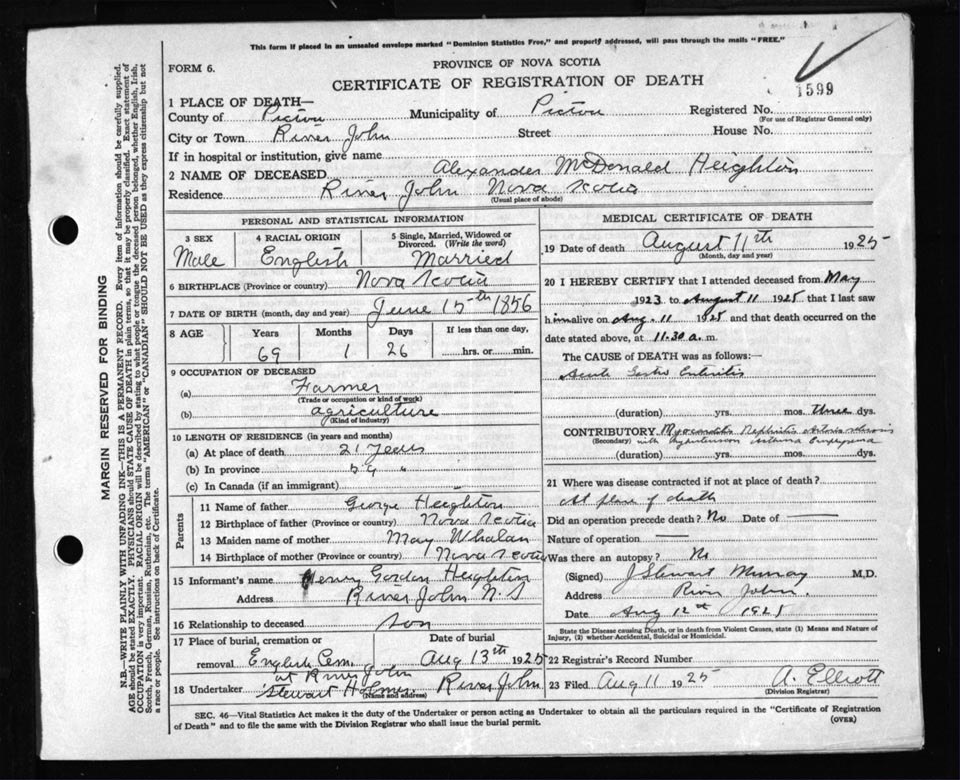 This form if placed in an unsealed envelope marked "Dominion Statistics Free," and properly addressed, will pass through the mails "FREE."
FORM 6.
PROVINCE OF NOVA SCOTIA
CERTIFICATE OF REGISTRATION OF DEATH
1599
1 PLACE OF DEATH—
County of Pictou Municipality of Pictou Registered No.
(For use of Registrar General only)
City or Town River John Street House No.
If in hospital or institution, give name
2 NAME OF DECEASED Alexander McDonald Heighton
Residence River John Nova Scotia
(Usual place of abode)
PERSONAL AND STATISTICAL INFORMATION
3 SEX
Male
4 RACIAL ORIGIN
English
5 Single, Married, Widowed or
Divorced. (Write the word)
Married
6 BIRTHPLACE (Province or country) Nova Scotia
7 DATE OF BIRTH (month, day and year) June 15th 1856
8 AGE
Years Months Days If less than one day,
69 1 26 hrs. or min.
9 OCCUPATION OF DECEASED
(a) Farmer
(Trade or occupation or kind of work)
(b) agriculture
(Kind of industry)
10 LENGTH OF RESIDENCE (in years and months)
(a) At place of death 21 Years
(b) In province "
(c) In Canada (if an immigrant)
Parents
11 Name of father George Heighton
12 Birthplace of father (Province or country) Nova Scotia
13 Maiden name of mother May Whalan
14 Birthplace of mother (Province or country) Nova Scotia
15 Informant's name Henry Gordon Heighton
Address River John N.S
16 Relationship to deceased son
17 Place of burial, cremation or Date of burial
removal English Cem. Aug 13th 1925
at River John
18 Undertaker Stewart River John
(Name and address)
MEDICAL CERTIFICATE OF DEATH
19 Date of death August 11th 1925
(Month, day and year)
20 I HEREBY CERTIFY that I attended deceased from May
1923 to August 11 1925 that I last saw
him alive on Aug. 11 1925 and that death occurred on
date stated above, at 11.30 a. m.
The CAUSE of DEATH was as follows:
Acute Gastro Enteritis
(duration) yrs. mos. three dys.
CONTRIBUTORY Myocarditis Nephritis Arteriosclerosis
(Secondary) with Hypertension Asthma Emphysema
(duration) yrs. mos. dys.
21 Where was disease contracted if not at place of death?
At place of death
Did an operation precede death? No Date of —
Nature of operation —
Was there an autopsy? No
(Signed) J Stewart Murray M.D.
Address River John.
Date Aug 12th 1925
State the Disease causing Death, or in death from Violent Causes, state (1) Means and Nature of
Injury, (2) whether Accidental, Suicidal or Homicidal.
22 Registrar's Record Number
23 Filed Aug 11 1925 A. Elliott
(Division Registrar)
SEC. 46—Vital Statistics Act makes it the duty of the Undertaker or person acting as Undertaker to obtain all the particulars required in the "Certificate of Registration
of Death" and to file the same with the Division Registrar who shall issue the burial permit.
(OVER)
MARGIN RESERVED FOR BINDING
N.B.—WRITE PLAINLY WITH UNFADING INK—THIS IS A PERMANENT RECORD. Every item of information should be carefully supplied.
AGE should be stated EXACTLY. PHYSICIANS should STATE CAUSE OF DEATH in plain terms, so that it may be properly classified. Exact statement of
OCCUPATION is very important. RACIAL ORIGIN will be described by stating to what people or tongue the deceased person belonged, whether English, Irish,
Scotch, French, German, Russian, Ruthenian, etc. The terms "AMERICAN" or "CANADIAN" SHOULD NOT BE USED as they express citizenship but not
a race or people. See instructions on back of Certificate.